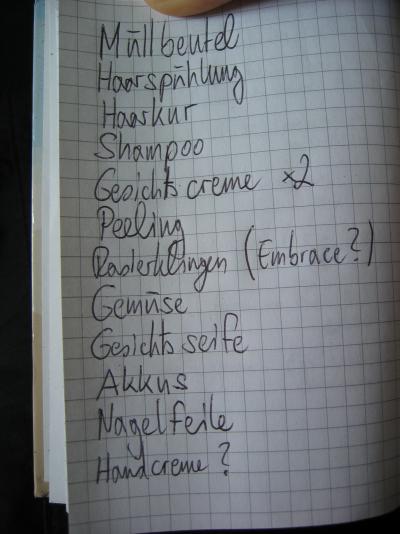 Müllbeutel
Haarspühlung
Haarkur
Shampoo
Gesichtscreme x2
Peeling
Rasierklingen (Embrace?)
Gemüse
Gesichtsseife
Akkus
Nagelfeile
Handcreme?